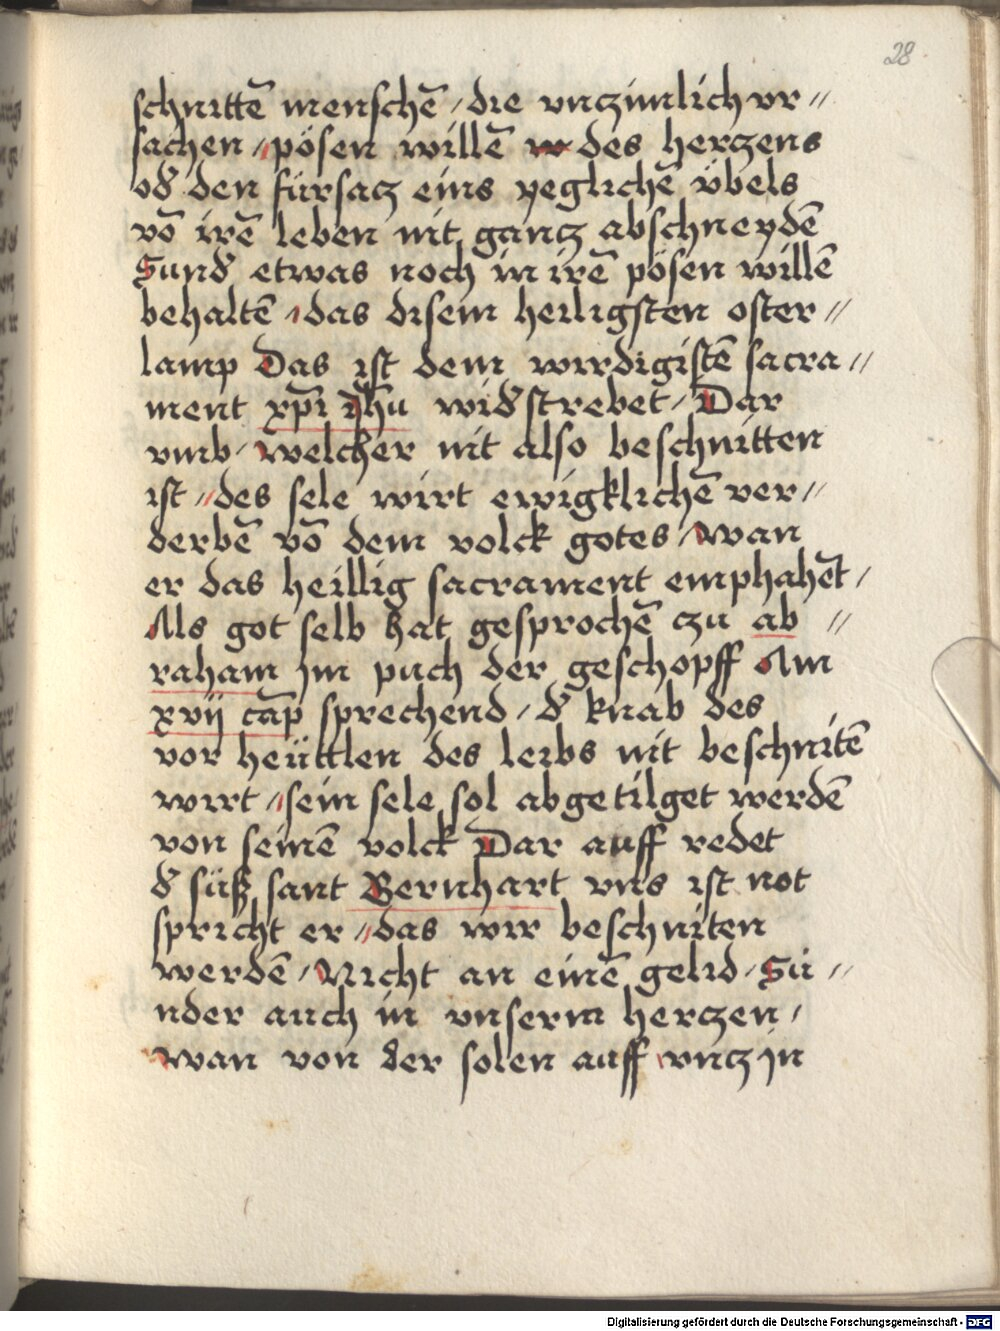 28
schnittē menschē / die vnczimlich vr //
sachen // pösen willē w des herczens
vð den fürsacz eins yeglichē übels
vō irē leben nit gancz abschneydē
Sunð etwas noch in irē pösen willē
behaltē / das disem heiligsten oster //
lamp Das ist dem wirdigistē sacra //
ment xp̄i ih̄u wiðstrebet / Dar
vmb / welcher nit also beschnitten
ist // des sele wirt ewigklichē ver //
derbē vō dem volck gotes / wan
er das heillig sacrament emphahēt /
Als got selb hat gesprochē czu ab //
raham jm puch der geschopff Am
xvij cap̄ sprechend / ð knab des
vor heüttlen des leibs nit beschnitē
wirt // sein sele sol abgetilget werdē
von seinē volck Dar auff redet
ð süß sant Bernhart vns ist not
spricht er // das wir beschniten
werdē / Nicht an einē gelid / Sü //
nder auch in vnserm herczen /
wan von der solen auff vncz jn
Digitalisierung gefördert durch die Deutsche Forschungsgemeinschaft - DFG